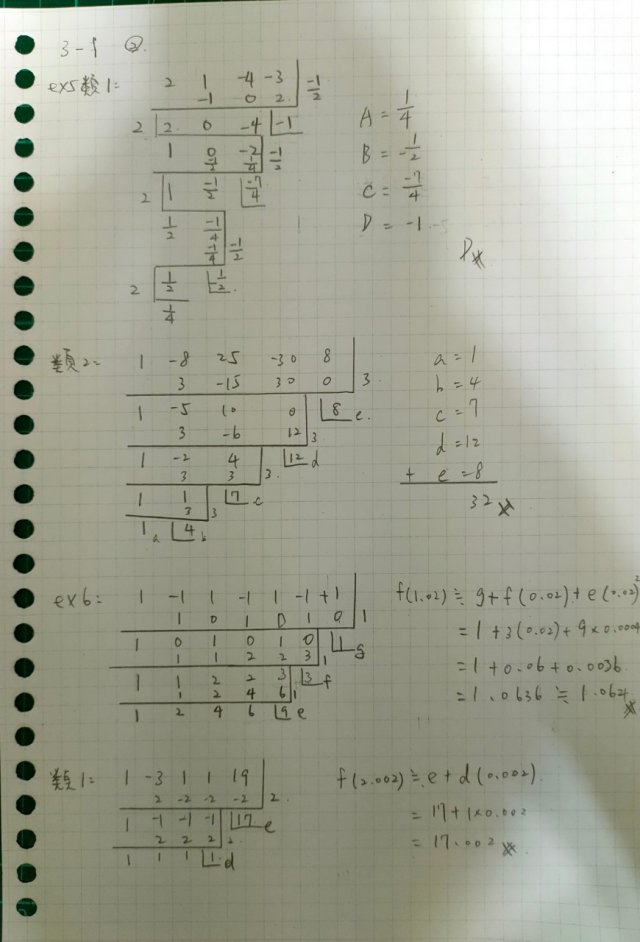 3-1 ②.
ex5類1= 2 1 -4 -3 | -1/2
-1 0 2
2 | 2 0 -4 | -1
1 0 -2 | -1/2
-1/2 1/4
2 | 1 -1/2 | -7/4
1/2 -1/4
-1/4 | -1/2
2 | 1/2 | -1/2
1/4
A = 1/4
B = -1/2
C = -7/4
D = -1
類2= 1 -8 25 -30 8
3 -15 30 0 | 3
1 -5 10 0 | 8 e
3 -6 12 | 3
1 -2 4 | 12 d
3 3 | 3
1 1 | 7 c
3 | 3
1 a | 4 b
a = 1
b = 4
c = 7
d = 12
+ e = 8
32
ex6= 1 -1 1 -1 1 -1 +1
1 0 1 0 1 0 | 1
1 0 1 0 1 0 | 1 g
1 1 2 2 3 | 1
1 1 2 2 3 | 3 f
1 2 4 6 | 1
1 2 4 6 | 9 e
f(1.02) ≒ g + f(0.02) + e(0.02)²
= 1 + 3(0.02) + 9 × 0.0004
= 1 + 0.06 + 0.0036
= 1.0636 ≒ 1.064
類1= 1 -3 1 1 19
2 -2 -2 -2 | 2
1 -1 -1 -1 | 17 e
2 2 2 | 2
1 1 1 | 1 d
f(2.002) ≒ e + d(0.002)
= 17 + 1×0.002
= 17.002